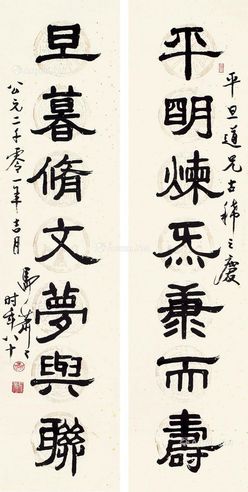 平旦道兄古稀之慶
平明煉炁兼而壽
旦暮脩文夢與聯
公元二千零一年吉月
馬蕭蕭
时年八十